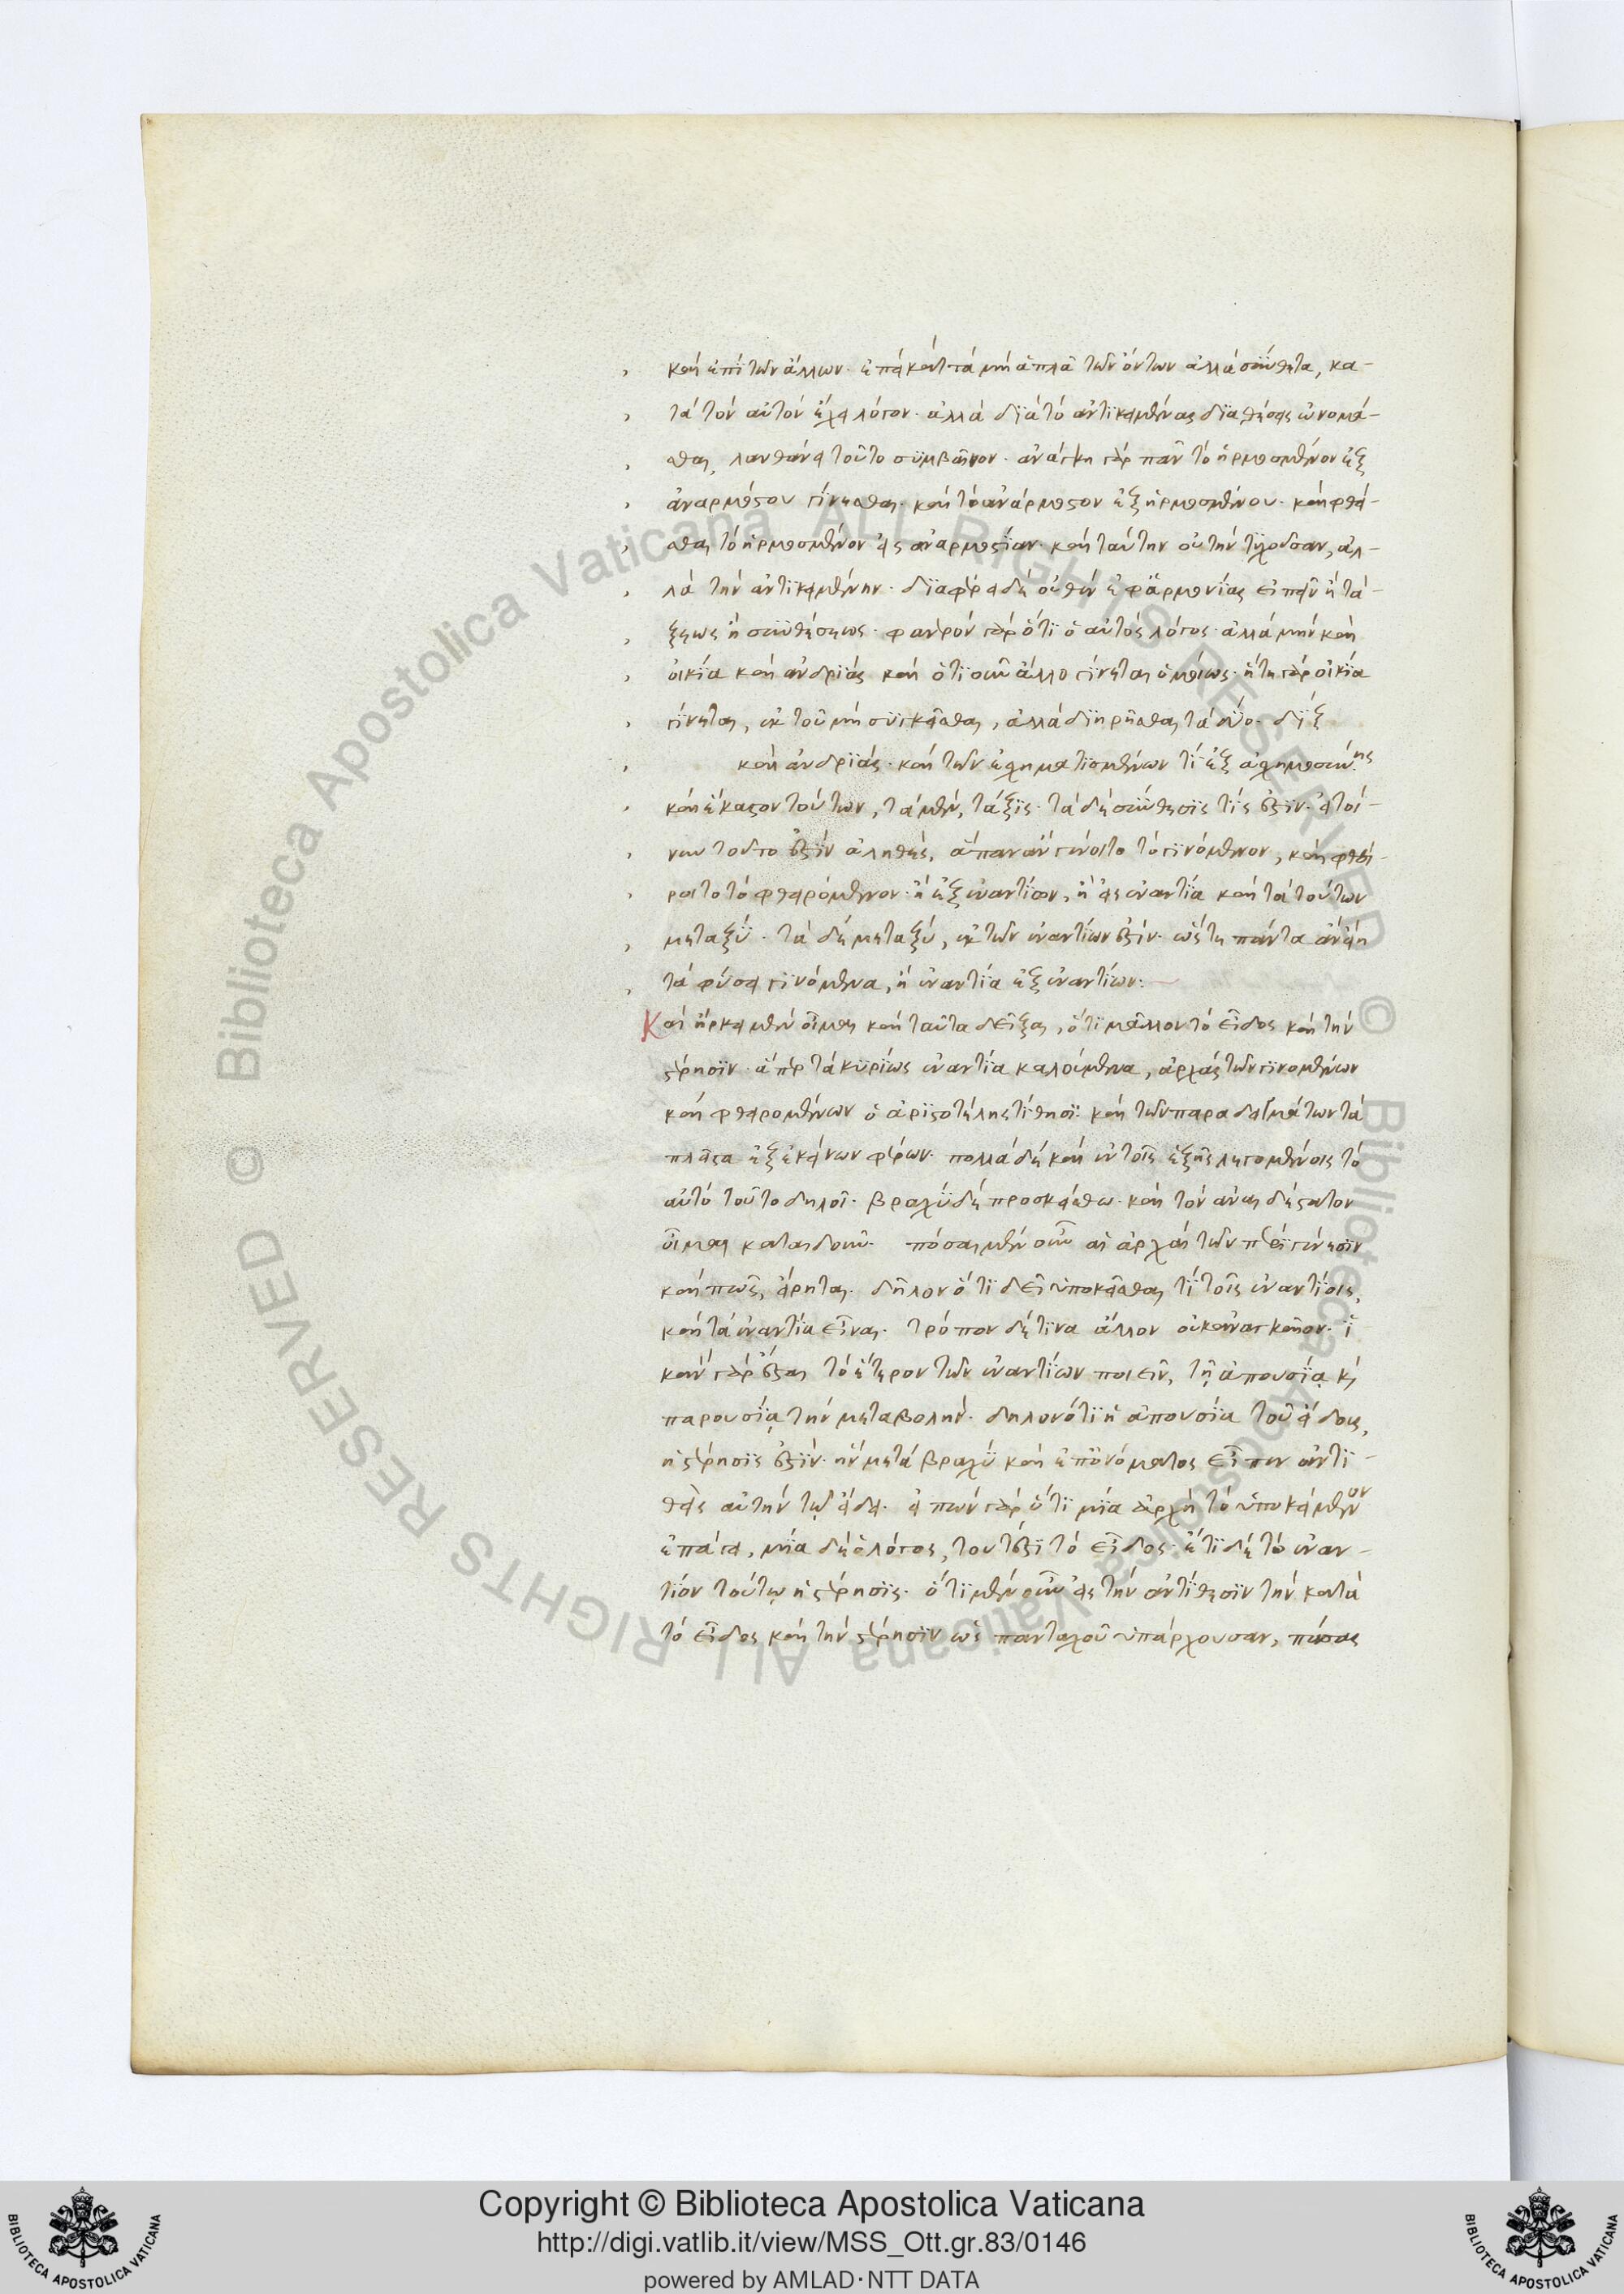 καὶ ἐπὶ τῶν ἄλλων· ἐπεὶ καὶ τὰ μὴ ἁπλᾶ τῶν ὄντων ἀλλὰ σύνθετα, κα-
τὰ τὸν αὐτὸν ἔχει λόγον· ἀλλὰ διὰ τὸ ἀντικειμένας διαθέσεις ὠνομά-
σθαι, λανθάνει τοῦτο συμβαῖνον· ἀνάγκη γὰρ πᾶν τὸ ἡρμοσμένον ἐξ
ἀναρμόστου γίνεσθαι· καὶ τὸ ἀνάρμοστον ἐξ ἡρμοσμένου· καὶ φθεί-
σθαι τὸ ἡρμοσμένον εἰς ἀναρμοστίαν· καὶ ταύτην οὐ τὴν τυχοῦσαν, ἀλ-
λὰ τὴν ἀντικειμένην· διαφέρει δὲ οὐθὲν ἐφ' ἁρμονίας εἰπεῖν ἢ τά-
ξεως ἢ συνθέσεως· φανερὸν γὰρ ὅτι ὁ αὐτὸς λόγος· ἀλλὰ μὴν καὶ
οἰκία καὶ ἀνδριὰς καὶ ὁτιοῦν ἄλλο γίνεται ὁμοίως· ἥτε γὰρ οἰκία
γίνεται, ἐκ τοῦ μὴ συγκεῖσθαι, ἀλλὰ διῃρῆσθαι τὰ δύο· δι' ἐξ
καὶ ἀνδριὰς· καὶ τῶν ἐσχηματισμένων τί ἐξ ἀσχημοσύνης
καὶ ἕκαστον τούτων, τὰ μὲν, τάξις· τὰ δὲ σύνθεσίς τίς ἐστιν· εἰ τοί-
νυν τοῦτο ἐστὶν ἀληθές, ἅπαν ἂν γίνοιτο τὸ γινόμενον, καὶ φθεί-
ροιτο τὸ φθειρόμενον· ἢ ἐξ ἐναντίων, ἢ εἰς ἐναντία καὶ τὰ τούτων
μεταξύ· τὰ δὲ μεταξύ, ἐκ τῶν ἐναντίων ἐστίν· ὥστε πάντα ἂν εἴη
τὰ φύσει γινόμενα, ἢ ἐναντία ἐξ ἐναντίων:
Καὶ ἤρκει μὲν οἶμαι καὶ ταῦτα δεῖξαι, ὅτι μᾶλλον τὸ εἶδος καὶ τὴν
στέρησιν· ἅπερ τὰ κυρίως ἐναντία καλούμενα, ἀρχὰς τῶν γινομένων
καὶ φθειρομένων ὁ ἀριστοτέλης τίθησι· καὶ τῶν παραδειγμάτων τὰ
πλεῖστα ἐξ ἐκείνων φέρων· πολλὰ δὲ καὶ ἐν τοῖς ἑξῆς λεγομένοις τὸ
αὐτὸ τοῦτο δηλοῖ· βραχὺ δὲ προσκείσθω· καὶ τὸν ἀναιδέστατον
οἶμαι καταιδοῦν· πόσαι μὲν οὖν αἱ ἀρχαὶ τῶν περὶ γένεσιν
καὶ πῶς, εἴρηται· δῆλον ὅτι δεῖ ὑποκεῖσθαι τὶ τοῖς ἐναντίοις,
καὶ τὰ ἐναντία εἶναι· τρόπον δέ τινα ἄλλον οὐκ ἀναγκαῖον· ἱ
κανὸν γὰρ ἔσται τὸ ἕτερον τῶν ἐναντίων ποιεῖν, τῇ ἀπουσίᾳ κὶ
παρουσίᾳ τὴν μεταβολήν· δηλονότι ἡ ἀπουσία τοῦ εἴδους,
ἡ στέρησις ἐστίν· ἣν μετὰ βραχὺ καὶ ἐπ' ὀνόματος εἶπεν ἀντι-
θεὶς αὐτὴν τῷ εἴδει· εἰπὼν γὰρ ὅτι μία ἀρχὴ τὸ ὑποκείμενον
ἐπάγει, μία δὲ ὁ λόγος, τουτέστι τὸ εἶδος· ἔτι δὲ τὸ ἐναν-
τίον τούτῳ ἡ στέρησις· ὅτι μὲν οὖν εἰς τὴν ἀντίθεσιν τὴν κατὰ
τὸ εἶδος καὶ τὴν στέρησιν ὡς πανταχοῦ ὑπάρχουσαν, πάσας
Copyright © Biblioteca Apostolica Vaticana
http://digi.vatlib.it/view/MSS_Ott.gr.83/0146
powered by AMLAD·NTT DATA